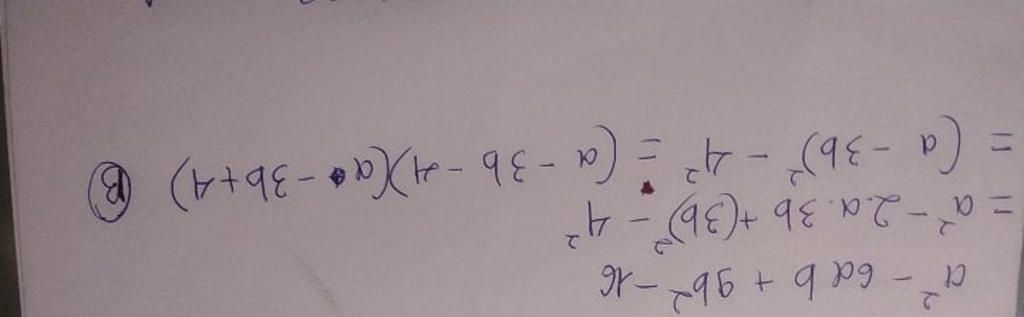 a² - 6ab + 9b² - 16
= a² - 2.a.3b + (3b)² - 4²
= (a - 3b)² - 4² = (a - 3b - 4)(a - 3b + 4) (B)